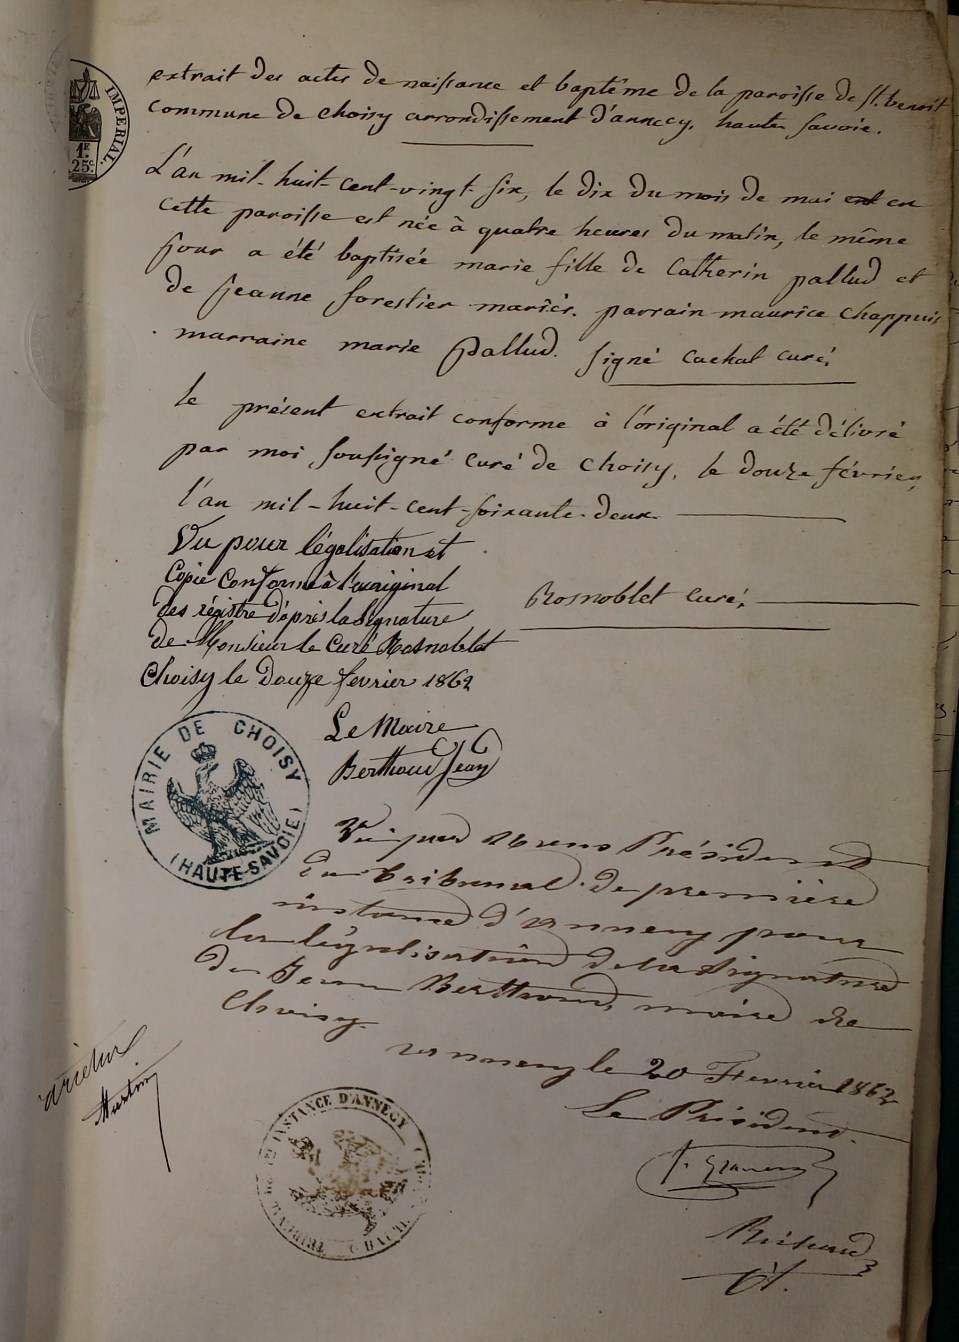 IMPERIAL.
1F
25c
extrait des actes de naissance et baptême de la paroisse de st. benoit
commune de choisy arrondissement d'annecy, haute savoie.
L'an mil-huit-cent-vingt-six, le dix du mois de mai en
cette paroisse est née à quatre heures du matin, le même
jour a été baptisée marie fille de Catherin pallud et
de jeanne forestier mariés. parrain maurice Chappuis
marraine marie pallud. signé Cachat curé.
le présent extrait conforme à l'original a été délivré
par moi soussigné curé de choisy, le douze février,
l'an mil-huit-cent-soixante-deux
Rosnoblet curé.
Vu pour légalisation et
Copie conforme à l'original
des régistre d'après la Signature
de Monsieur le Curé Rosnoblet
Choisy le Douze fevrier 1862
Le Maire
Berthoud Jean
MAIRIE DE CHOISY
(HAUTE-SAVOIE)
Vu par Nous Président
du tribunal de première
instance d'Annecy pour
la légalisation de la Signature
de Jean Berthoud, maire de
Choisy.
Annecy le 20 Fevrier 1862
Le Président.
TRIBUNAL DE 1RE INSTANCE D'ANNECY